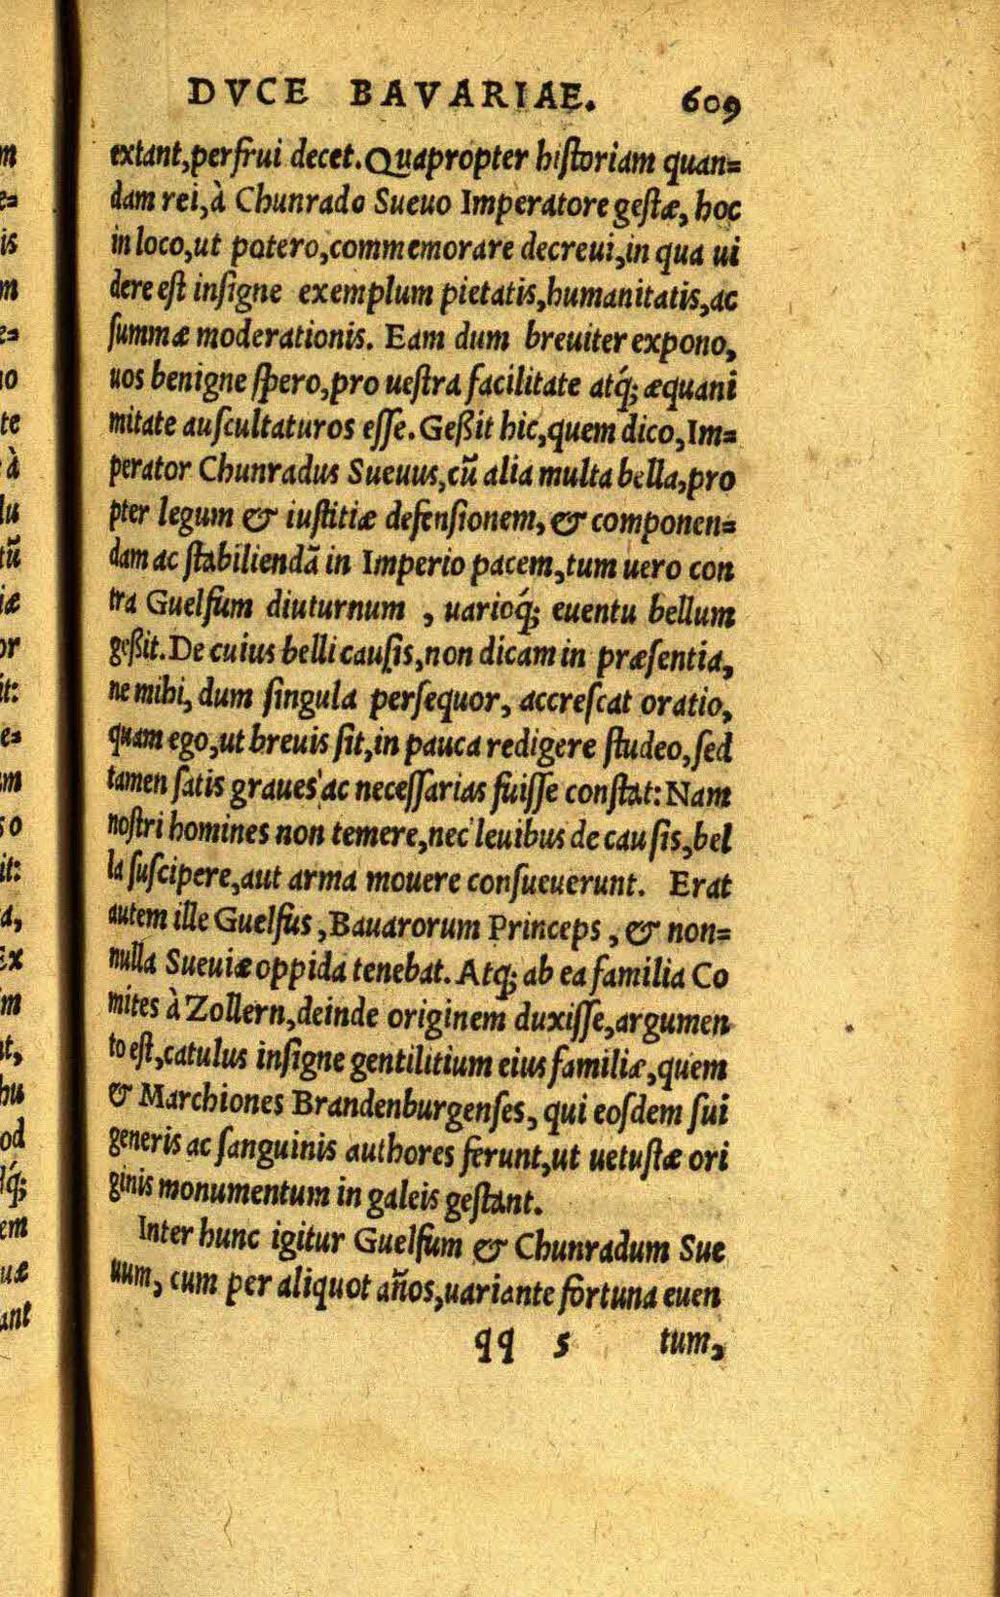 DVCE BAVARIAE. 609
extant, perfrui decet. Quapropter historiam quan=
dam rei, à Chunrado Sueuo Imperatore gestæ, hoc
in loco, ut potero, commemorare decreui, in qua ui
dere est insigne exemplum pietatis, humanitatis, ac
summæ moderationis. Eam dum breuiter expono,
uos benigne spero, pro uestra facilitate atq́; æquani
mitate auscultaturos esse. Geßit hic, quem dico, Im=
perator Chunradus Sueuus, cũ alia multa bella, pro
pter legum & iustitiæ defensionem, & componen=
dam ac stabiliendã in Imperio pacem, tum uero con
tra Guelfum diuturnum, uarioq́; euentu bellum
geßit. De cuius belli causis, non dicam in præsentia,
ne mihi, dum singula persequor, accrescat oratio,
quam ego, ut breuis sit, in pauca redigere studeo, sed
tamen satis graues ac necessarias fuisse constat: Nam
nostri homines non temere, nec leuibus de causis, bel
la suscipere, aut arma mouere consueuerunt. Erat
autem ille Guelfus, Bauarorum Princeps, & non=
nulla Sueuiæ oppida tenebat. Atq; ab ea familia Co
mites à Zollern, deinde originem duxisse, argumen
to est, catulus insigne gentilitium eius familiæ, quem
& Marchiones Brandenburgenses, qui eosdem sui
generis ac sanguinis authores ferunt, ut uetustæ ori
ginis monumentum in galeis gestant.
Inter hunc igitur Guelfum & Chunradum Sue
uum, cum per aliquot años, uariante fortuna euen
qq 5 tum,